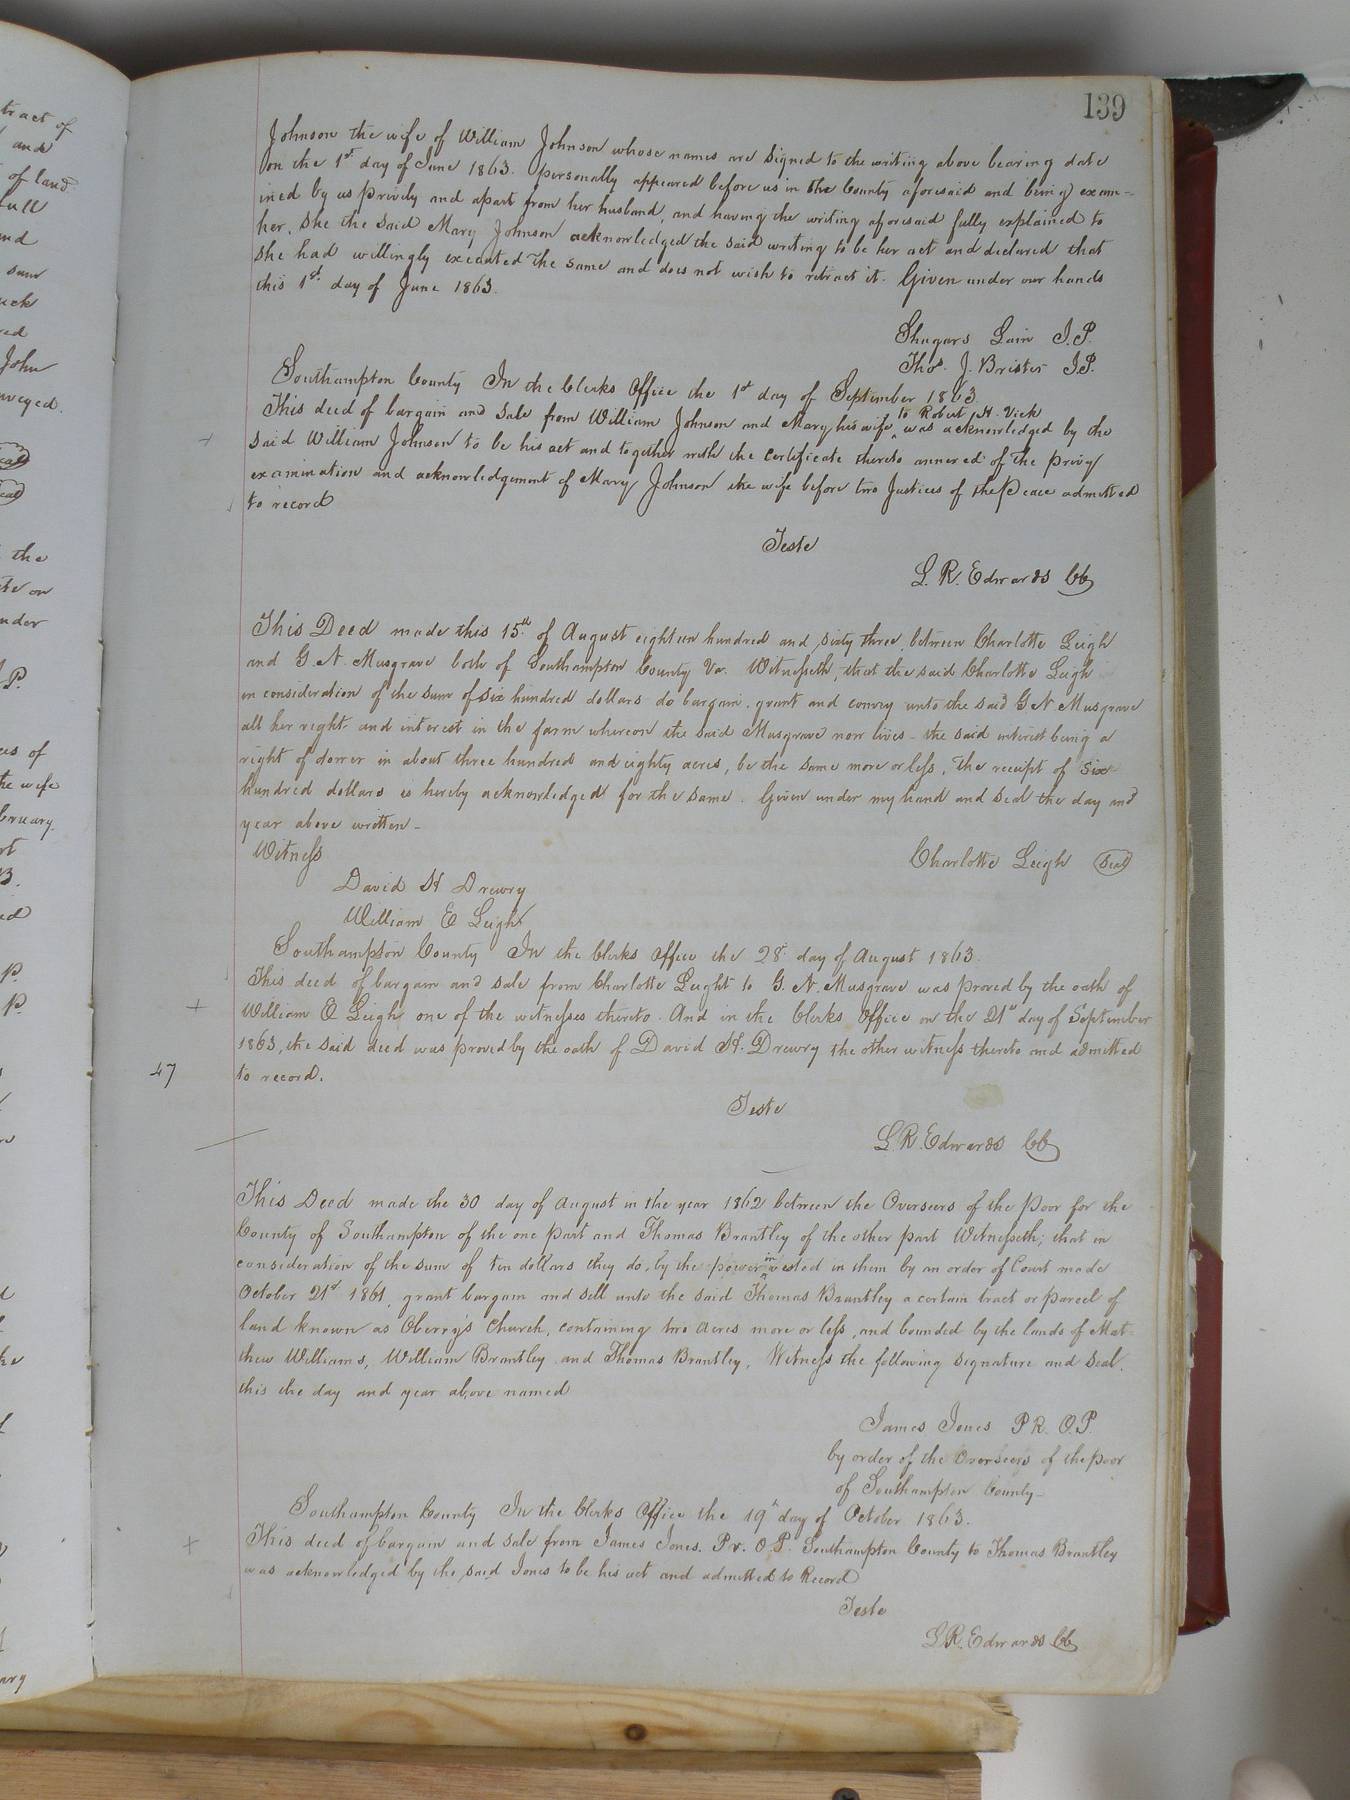 139
Johnson the wife of William Johnson whose names are signed to the writing above bearing date
on the 1st day of June 1863. personally appeared before us in the County aforesaid and being exam-
ined by us privily and apart from her husband, and having the writing aforesaid fully explained to
her, She the said Mary Johnson acknowledged the said writing to be her act and declared that
she had willingly executed the same and does not wish to retract it. Given under our hands
this 1st day of June 1863.
Shugars Lain J.P.
Thos. J. Brister J.P.
Southampton County In the Clerks Office the 1st day of September 1863
This deed of bargain and sale from William Johnson and Mary his wife, to Robert H. Vick was acknowledged by the
said William Johnson to be his act and together with the certificate thereto annexed of the privy
examination and acknowledgement of Mary Johnson the wife before two Justices of the Peace admitted
to record
Teste
L. R. Edwards CC
This Deed made this 15th of August eighteen hundred and sixty three, between Charlotte Leigh
and G. N. Musgrave both of Southampton County Va. Witnesseth, that the said Charlotte Leigh
in consideration of the sum of six hundred dollars do bargain, grant and convey unto the said G N Musgrave
all her right and interest in the farm whereon the said Musgrave now lives - the said interest being a
right of dower in about three hundred and eighty acres, be the same more or less, the receipt of six
hundred dollars is hereby acknowledged for the same. Given under my hand and seal the day and
year above written -
Witness
Charlotte Leigh Seal
David H Drewry
William E Leigh
Southampton County In the Clerks Office the 28 day of August 1863.
This deed of bargain and sale from Charlotte Leight to G. N. Musgrave was proved by the oath of
William E Leigh one of the witnesses thereto. And in the Clerks Office on the 21st day of September
1863, the said deed was proved by the oath of David H. Drewry the other witness thereto and admitted
47
to record.
Teste
L. R. Edwards CC
This Deed made the 30 day of August in the year 1862 between the Overseers of the Poor for the
County of Southampton of the one part and Thomas Brantley of the other part Witnesseth; that in
consideration of the sum of ten dollars they do, by the power invested in them by an order of Court made
October 21st 1861, grant bargain and sell unto the said Thomas Brantley a certain tract or parcel of
land known as Oberry's Church, containing two acres more or less, and bounded by the lands of Mat-
thew Williams, William Brantley and Thomas Brantley. Witness the following signature and seal.
this the day and year above named
James Jones PR. O.P.
by order of the Overseers of the poor
of Southampton County-
Southampton County In the Clerks Office the 19th day of October 1863.
This deed of bargain and sale from James Jones. Pr. O.P. Southampton County to Thomas Brantley
was acknowledged by the said Jones to be his act and admitted to Record
Teste
L. R. Edwards CC